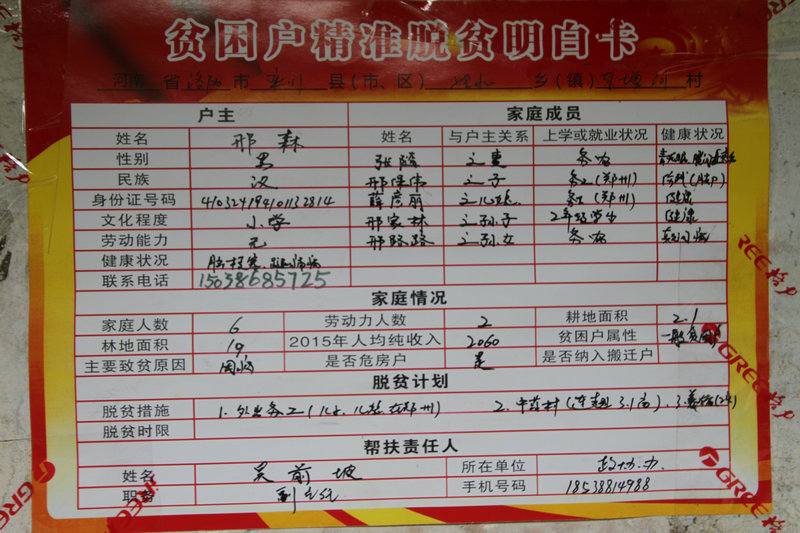 贫困户精准脱贫明白卡
河南省洛阳市栾川县(市、区) 乡(镇) 村
户主 家庭成员
姓名 邢森 姓名 与户主关系 上学或就业状况 健康状况
性别 男 之妻 务农
民族 汉 邢保伟 之子 务工(郑州)
身份证号码 410324194101132814 薛彦丽 之儿媳 务工(郑州) 健康
文化程度 小学 邢家林 之孙子 2年级学生 健康
劳动能力 无 邢路路 之孙女 务农
健康状况
联系电话 15038685725
家庭情况
家庭人数 6 劳动力人数 2 耕地面积 2.1
林地面积 19 2015年人均纯收入 2060 贫困户属性 一般贫困户
主要致贫原因 因病 是否危房户 是 是否纳入搬迁户
脱贫计划
脱贫措施 1.外出务工(儿子、儿媳在郑州) 2.中药材(连翘3.1亩)、3.养猪(2头)
脱贫时限
帮扶责任人
姓名 吴前坡 所在单位
职务 副主任 手机号码 18538814988
GREE格力
GREE格力
GREE
REE格力